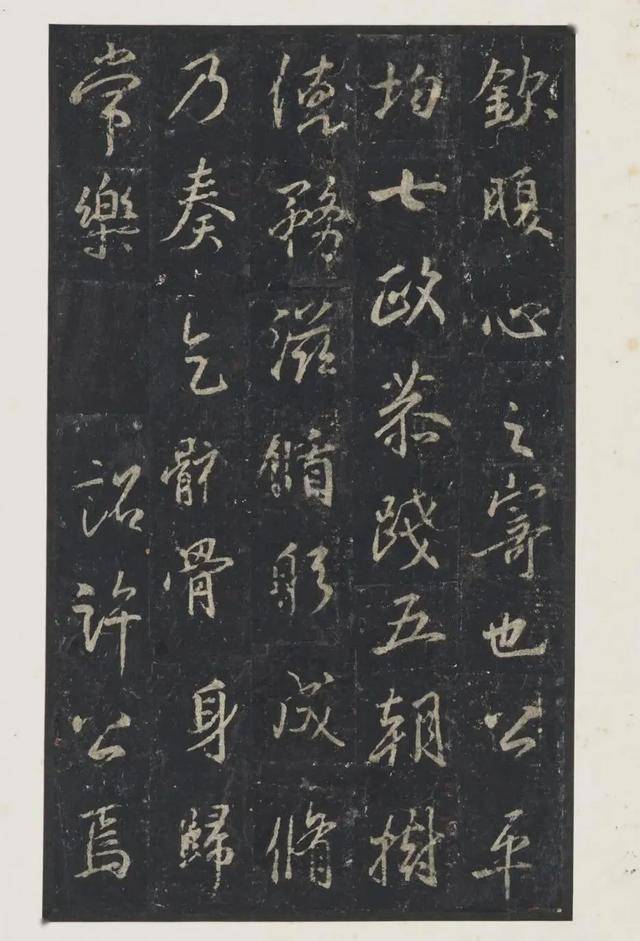 欽腹心之寄也公平
均七政恭踐五朝樹
德務滋循躬成脩
乃奏乞骸骨身歸
常樂 詔許公焉